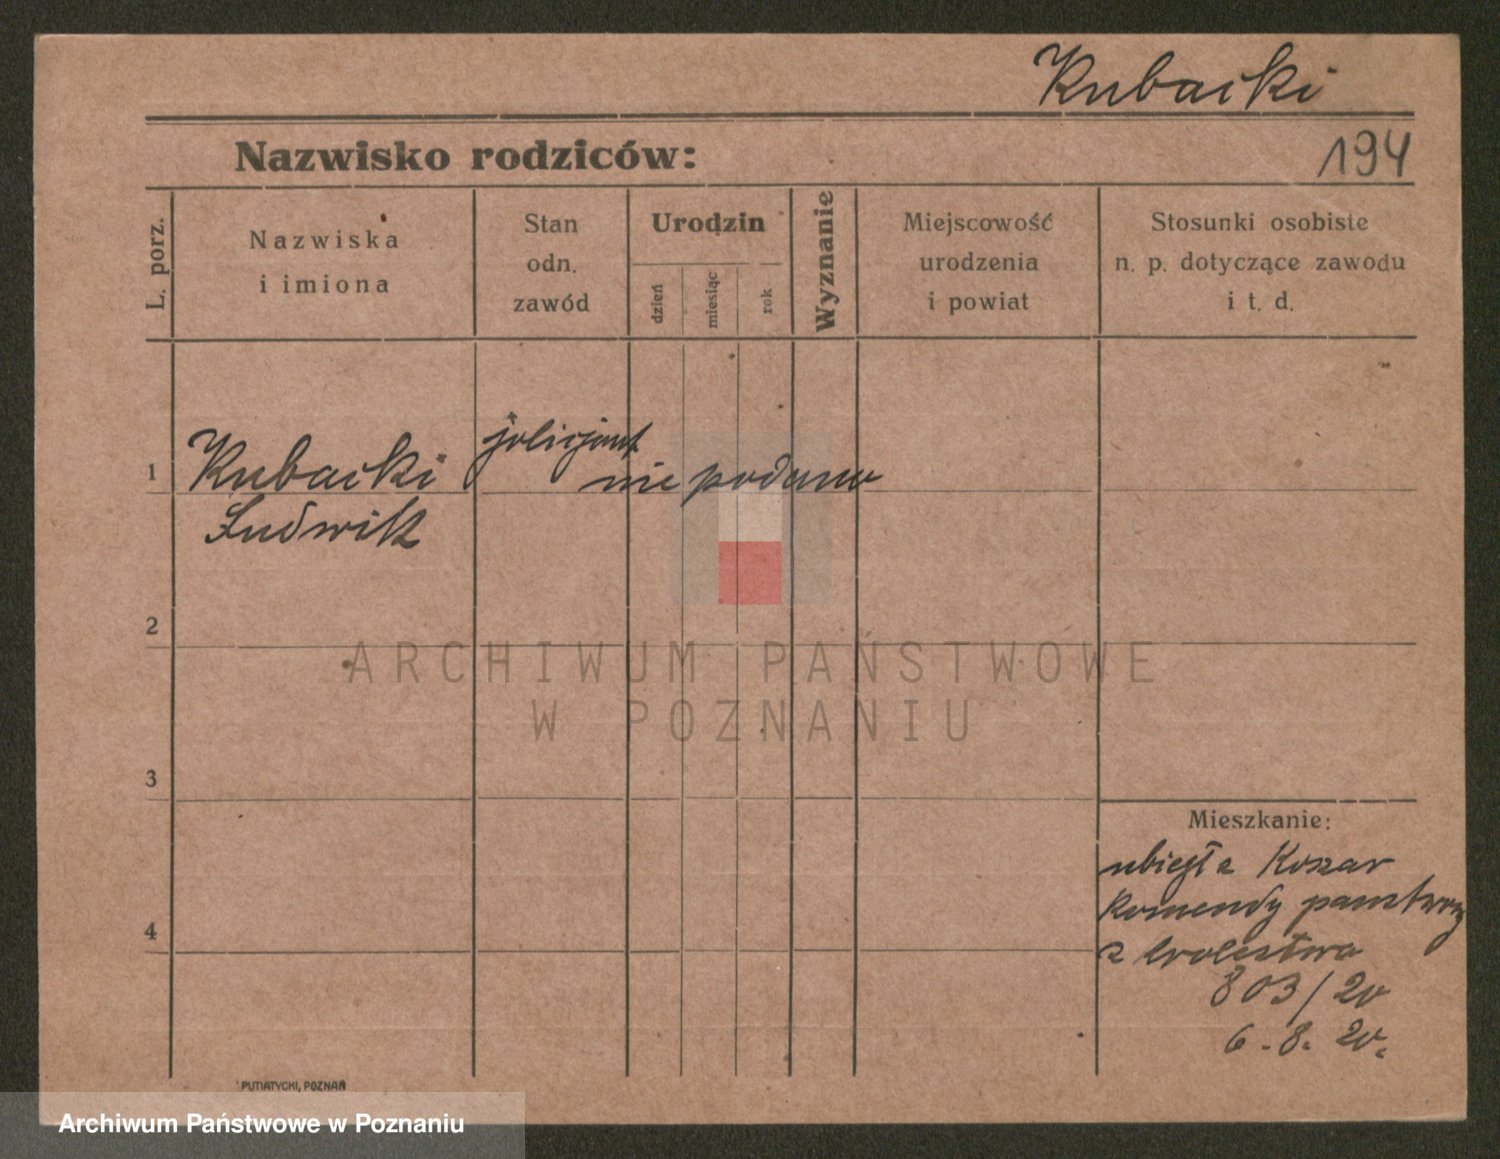 Kubacki
194
Nazwisko rodziców:
L. porz.
Nazwiska
i imiona
Stan
odn.
zawód
Urodzin
dzień
miesiąc
rok
Wyznanie
Miejscowość
urodzenia
i powiat
Stosunki osobiste
n. p. dotyczące zawodu
i t. d.
1
Kubacki
Ludwik
policjant
nie podano
2
3
4
ARCHIWUM PAŃSTWOWE
W POZNANIU
Mieszkanie:
ubiegł z Koszar
Komendy
z
803/20
6.8.20.
PUTIATYCKI, POZNAŃ
Archiwum Państwowe w Poznaniu